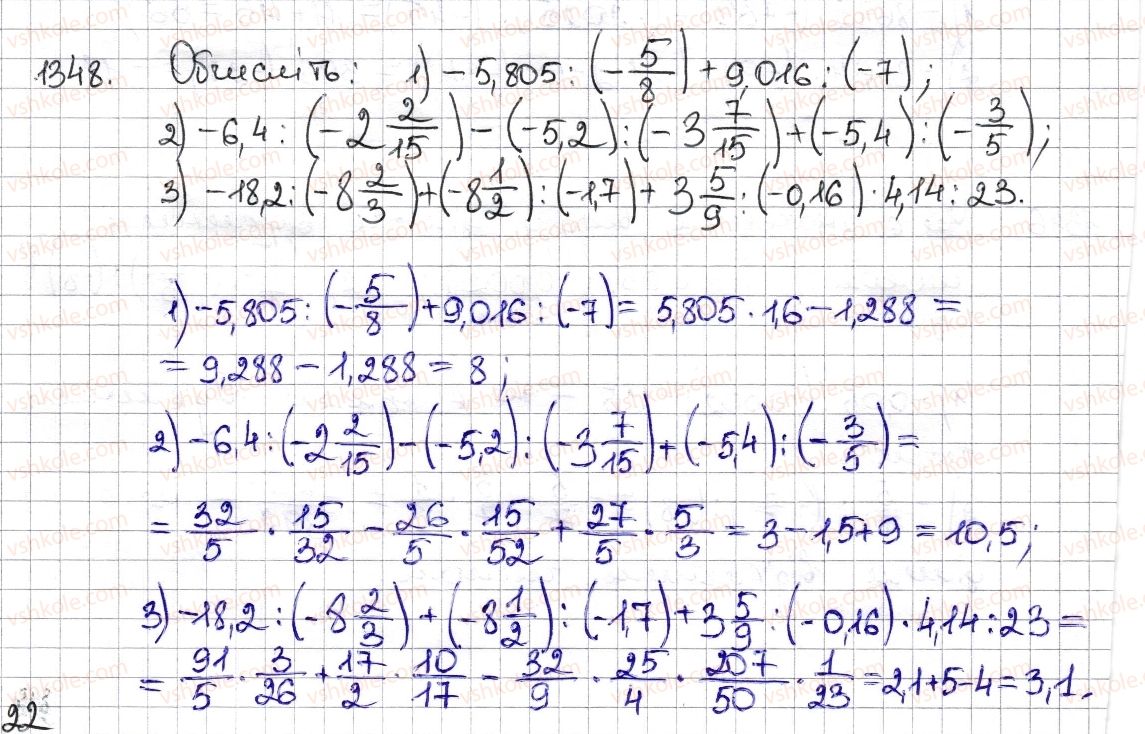 1348. Обчисліть: 1) −5,805 : (−5/8) + 9,016 : (−7);
2) −6,4 : (−2 2/15) − (−5,2) : (−3 7/15) + (−5,4) : (−3/5);
3) −18,2 : (−8 2/3) + (−8 1/2) : (−1,7) + 3 5/9 : (−0,16) · 4,14 : 23.
1) −5,805 : (−5/8) + 9,016 : (−7) = 5,805 · 1,6 − 1,288 =
= 9,288 − 1,288 = 8;
2) −6,4 : (−2 2/15) − (−5,2) : (−3 7/15) + (−5,4) : (−3/5) =
= 32/5 · 15/32 − 26/5 · 15/52 + 27/5 · 5/3 = 3 − 1,5 + 9 = 10,5;
3) −18,2 : (−8 2/3) + (−8 1/2) : (−1,7) + 3 5/9 : (−0,16) · 4,14 : 23 =
= 91/5 · 3/26 + 17/2 · 10/17 − 32/9 · 25/4 · 207/50 · 1/23 = 2,1 + 5 − 4 = 3,1.
22